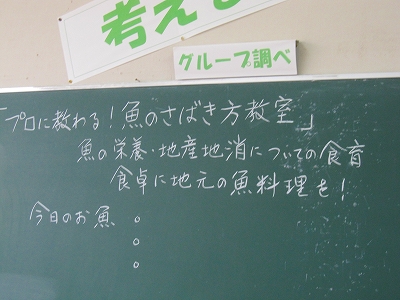 考え
グループ調べ
「プロに教わる!魚のさばき方教室」
魚の栄養・地産地消についての食育
食卓に地元の魚料理を!
今日のお魚 。
。
。